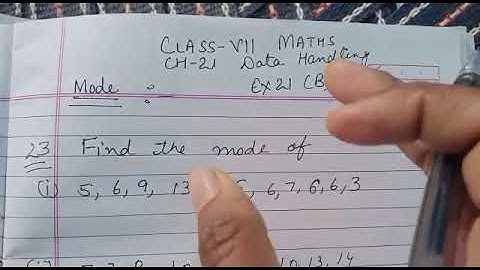 CLASS-VII MATHS
CH-21 Data Handling
Mode :- Ex 21 (B
23 Find the mode of
(i) 5, 6, 9, 13, 6, 7, 6, 6, 3
10, 13, 14